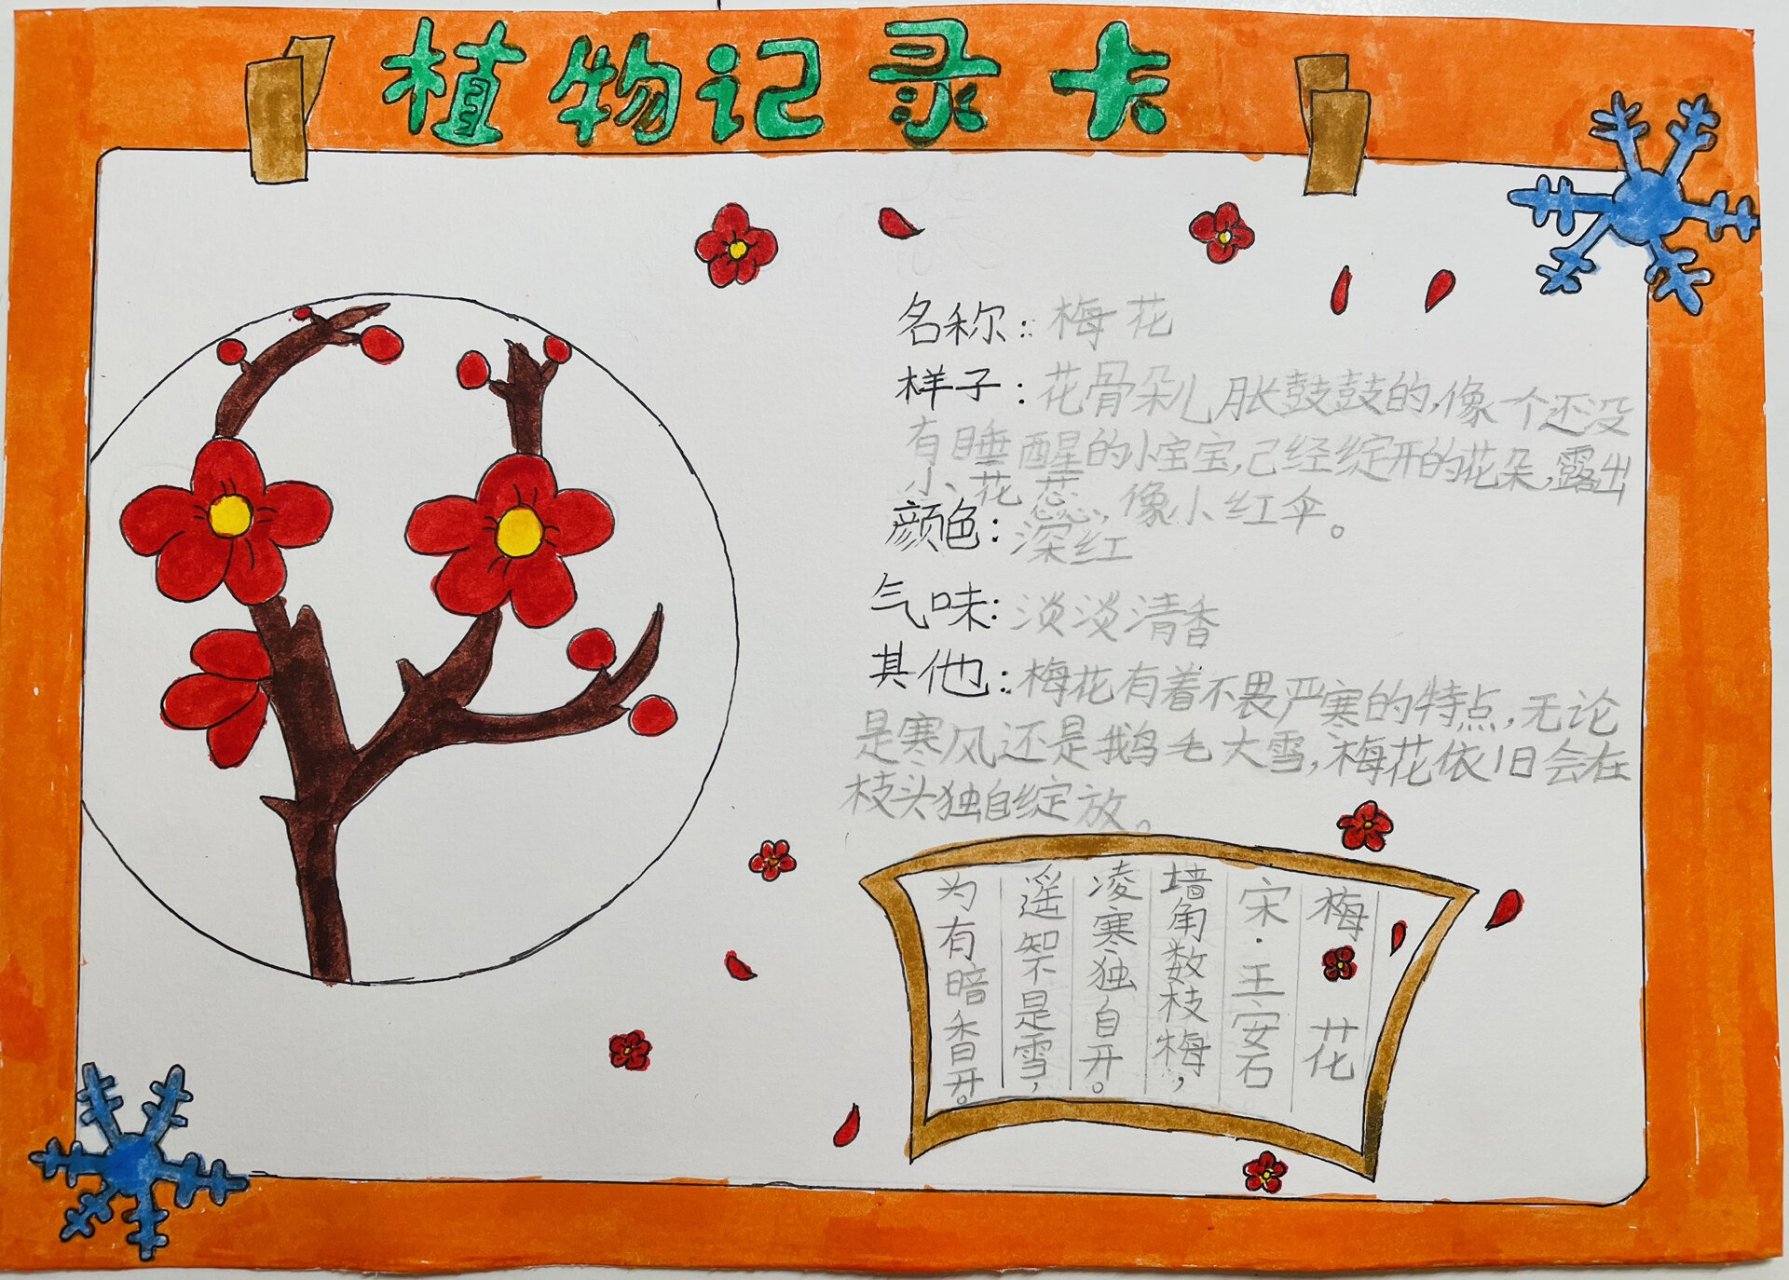 植物记录卡
名称：梅花
样子：花骨朵儿胀鼓鼓的，像一个还没
有睡醒的小宝宝，己经绽开的花朵，露出
小花蕊，像小红伞。
颜色：深红
气味：淡淡清香
其他：梅花有着不畏严寒的特点，无论
是寒风还是鹅毛大雪，梅花依旧会在
枝头独自绽放。
梅花
宋·王安石
墙角数枝梅，
凌寒独自开。
遥知不是雪，
为有暗香开。